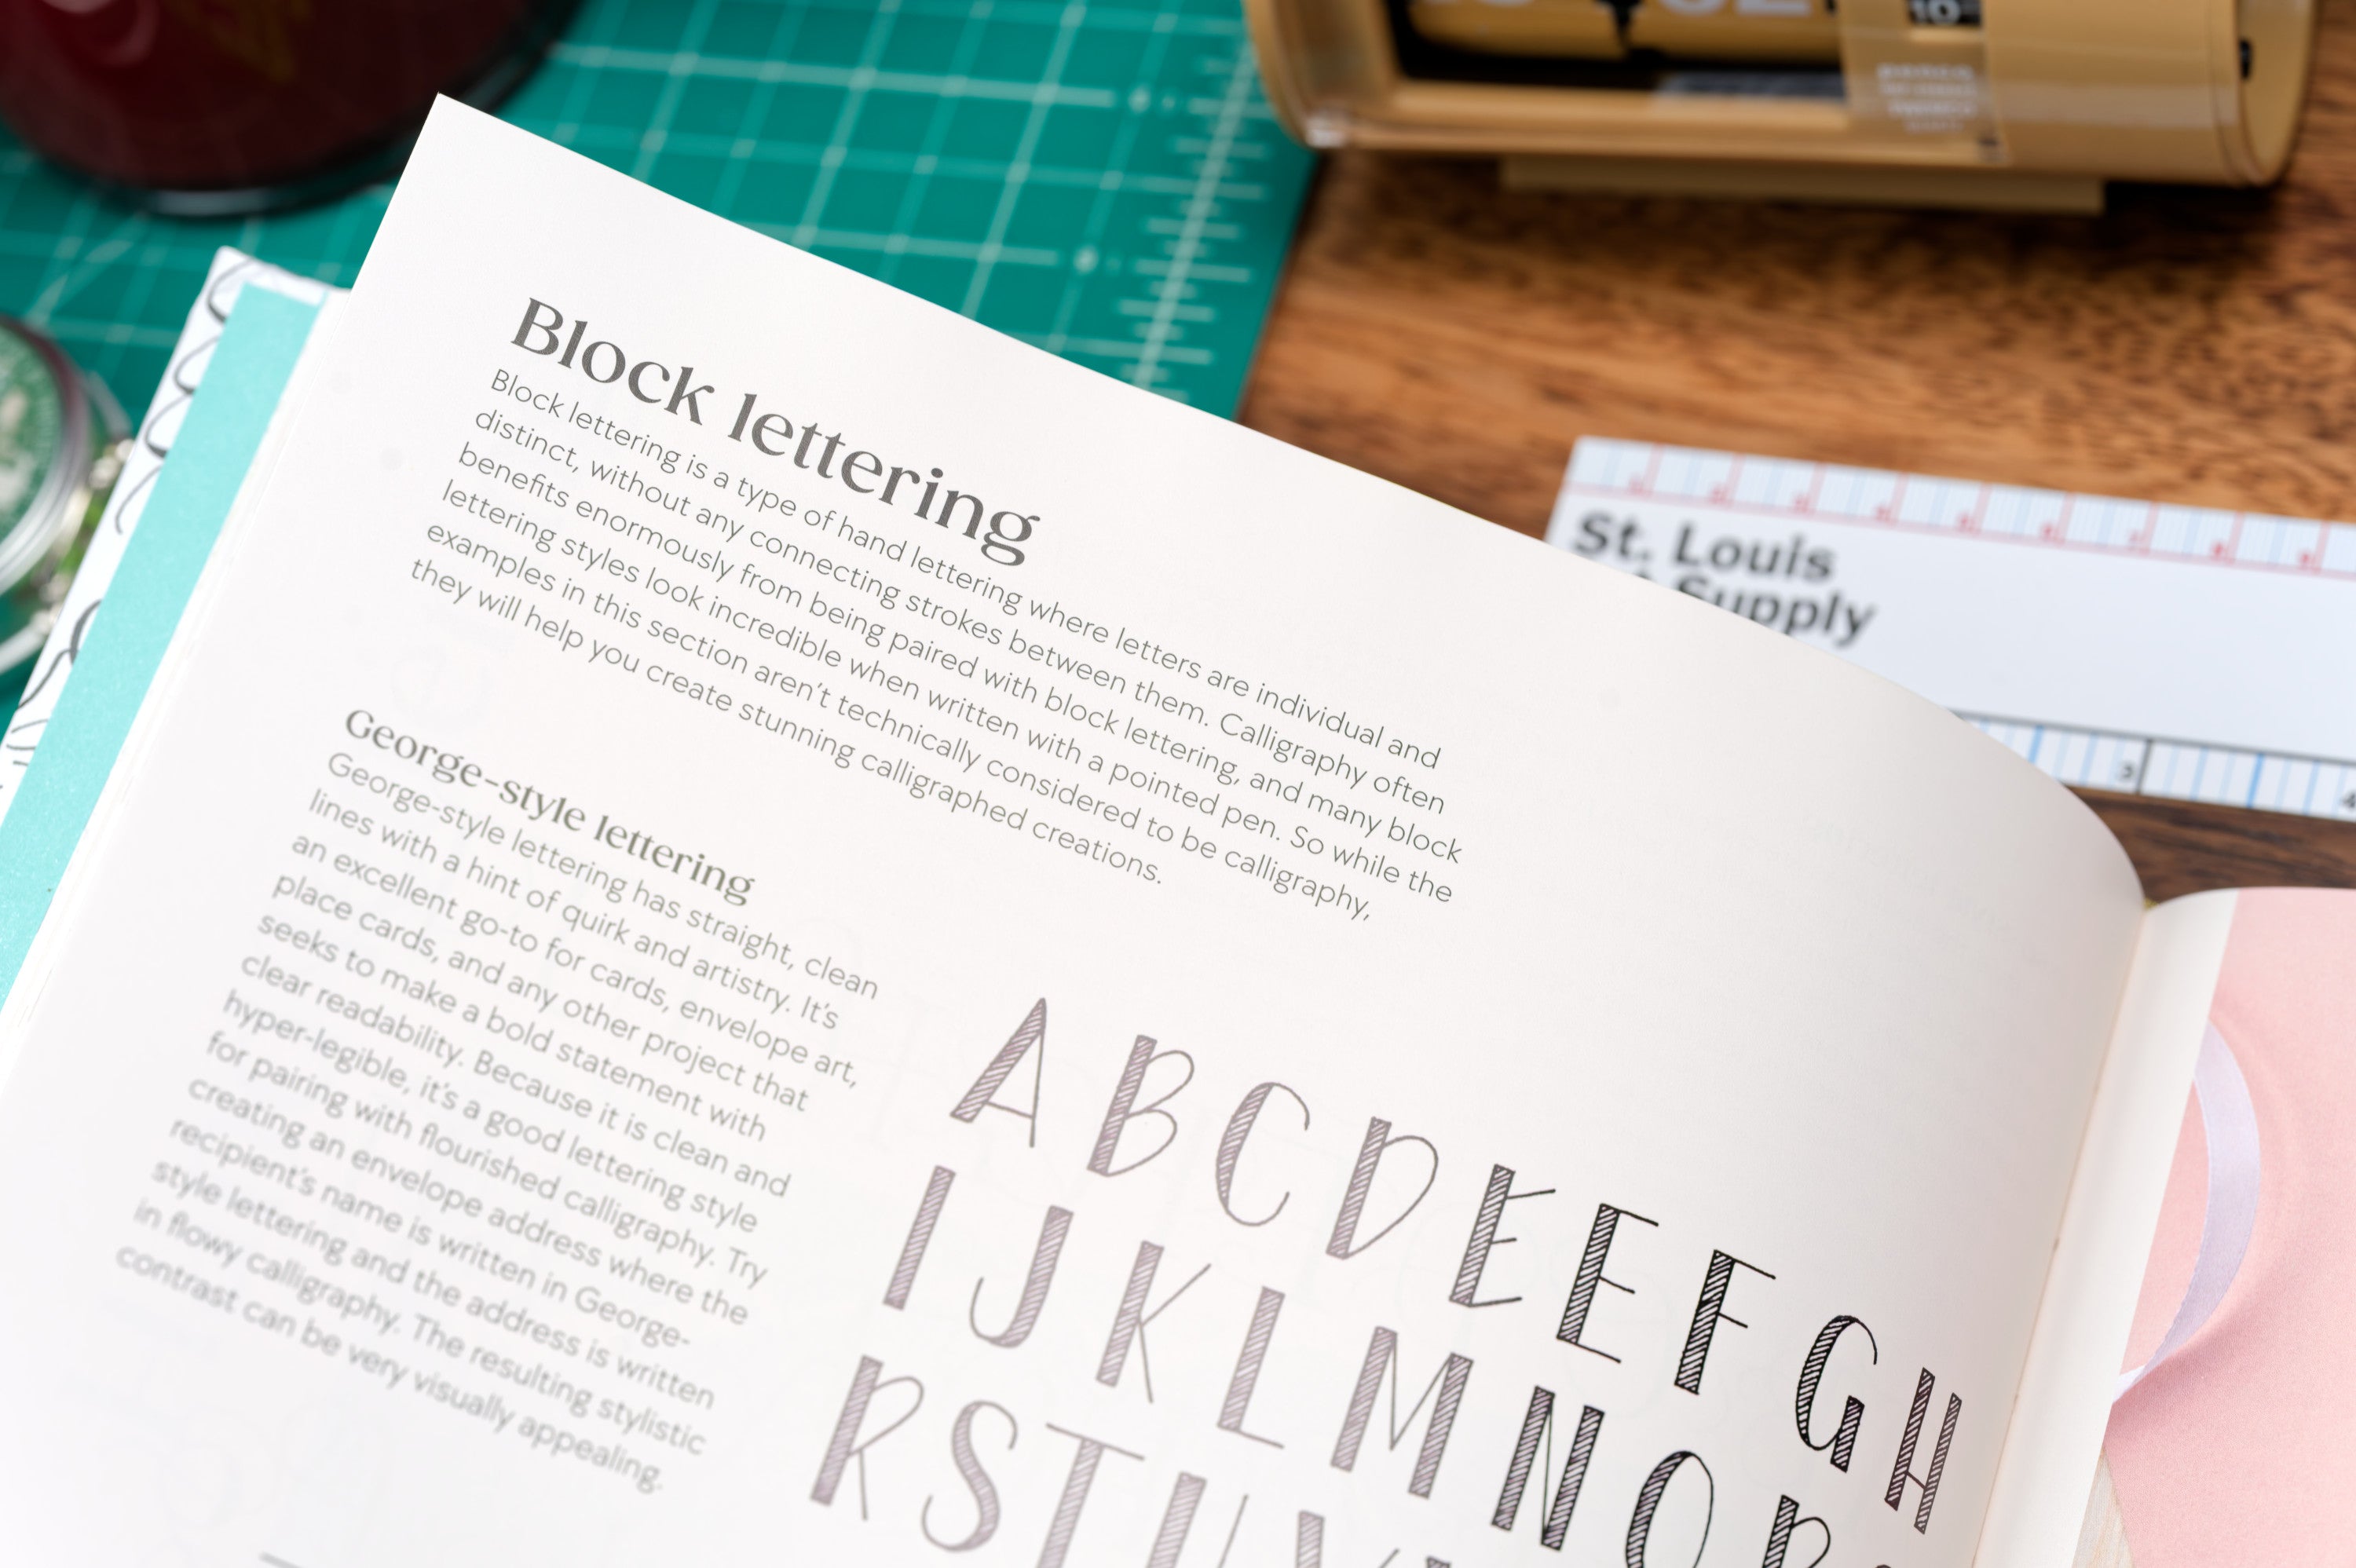 10
St. Louis
Supply
3
4
Block lettering
Block lettering is a type of hand lettering where letters are individual and
distinct, without any connecting strokes between them. Calligraphy often
benefits enormously from being paired with block lettering, and many block
lettering styles look incredible when written with a pointed pen. So while the
examples in this section aren't technically considered to be calligraphy,
they will help you create stunning calligraphed creations.
George-style lettering
George-style lettering has straight, clean
lines with a hint of quirk and artistry. It's
an excellent go-to for cards, envelope art,
place cards, and any other project that
seeks to make a bold statement with
clear readability. Because it is clean and
hyper-legible, it's a good lettering style
for pairing with flourished calligraphy. Try
creating an envelope address where the
recipient's name is written in George-
style lettering and the address is written
in flowy calligraphy. The resulting stylistic
contrast can be very visually appealing.
A B C D E E F G H
I J K L M N O P
R S T U